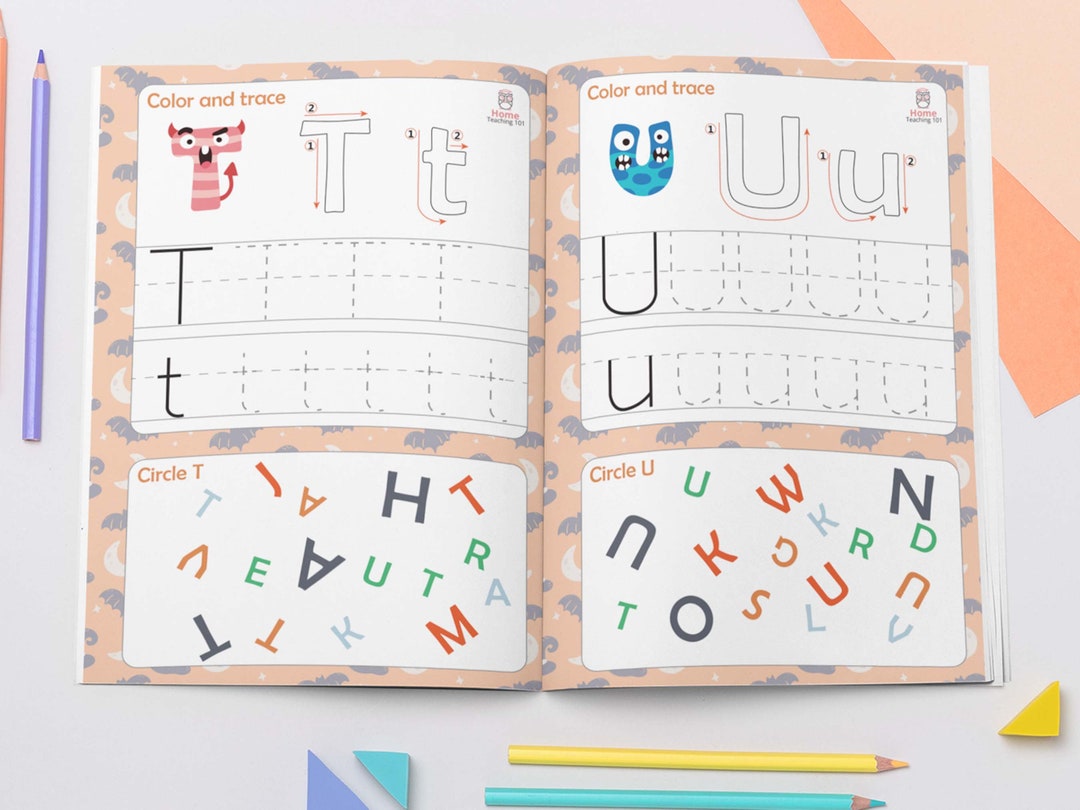 Color and trace
Home
Teaching 101
T
② 
① 
T
① 
② 
t
T
t
Circle T
T
J
A
H
T
V
E
A
U
T
R
A
T
T
K
M
Color and trace
Home
Teaching 101
U
① 
U
① 
② 
u
U U U U U
u u u u u
Circle U
U
W
N
U
K
K
G
R
D
T
O
S
U
L
U